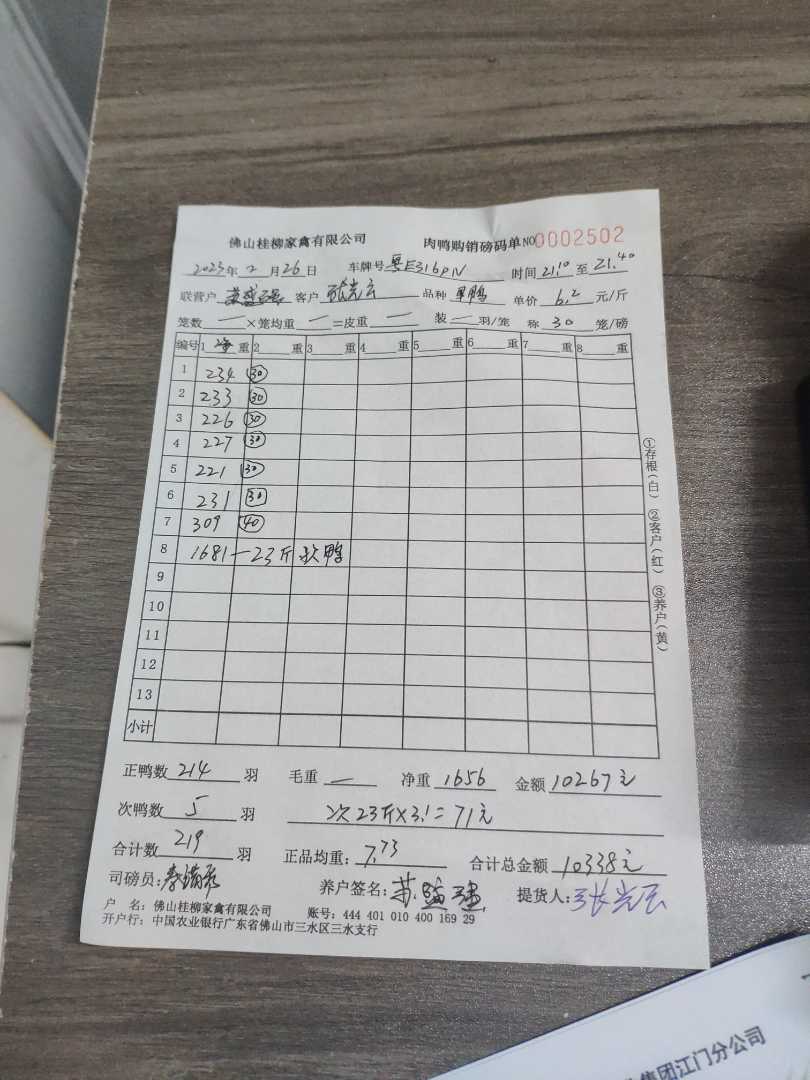 佛山桂柳家禽有限公司 肉鸭购销磅码单 NO0002502
2023年 2 月 26 日 车牌号 粤E316PN 时间 21.10 至 21.40
联营户 客户 张光云 品种 单价 6.2 元/斤
笼数 一 ×笼均重 一 =皮重 一 装 一 羽/笼 称 30 笼/磅
编号 1 净 重 2 重 3 重 4 重 5 重 6 重 7 重 8 重
1 234 30
2 233 30
3 226 30
4 227 30
5 221 30
6 231 30
7 309 40
8 1681 - 23斤 次鸭
9
10
11
12
13
小计
正鸭数 214 羽 毛重 一 净重 1656 金额 10267元
次鸭数 5 羽 次 23斤×3.1= 71元
合计数 219 羽 正品均重: 7.73 合计总金额 10338元
司磅员: 养户签名: 提货人: 张光云
户 名: 佛山桂柳家禽有限公司 账号: 444 401 010 400 169 29
开户行: 中国农业银行广东省佛山市三水区三水支行
①存根(白) ②客户(红) ③养户(黄)
集团江门分公司